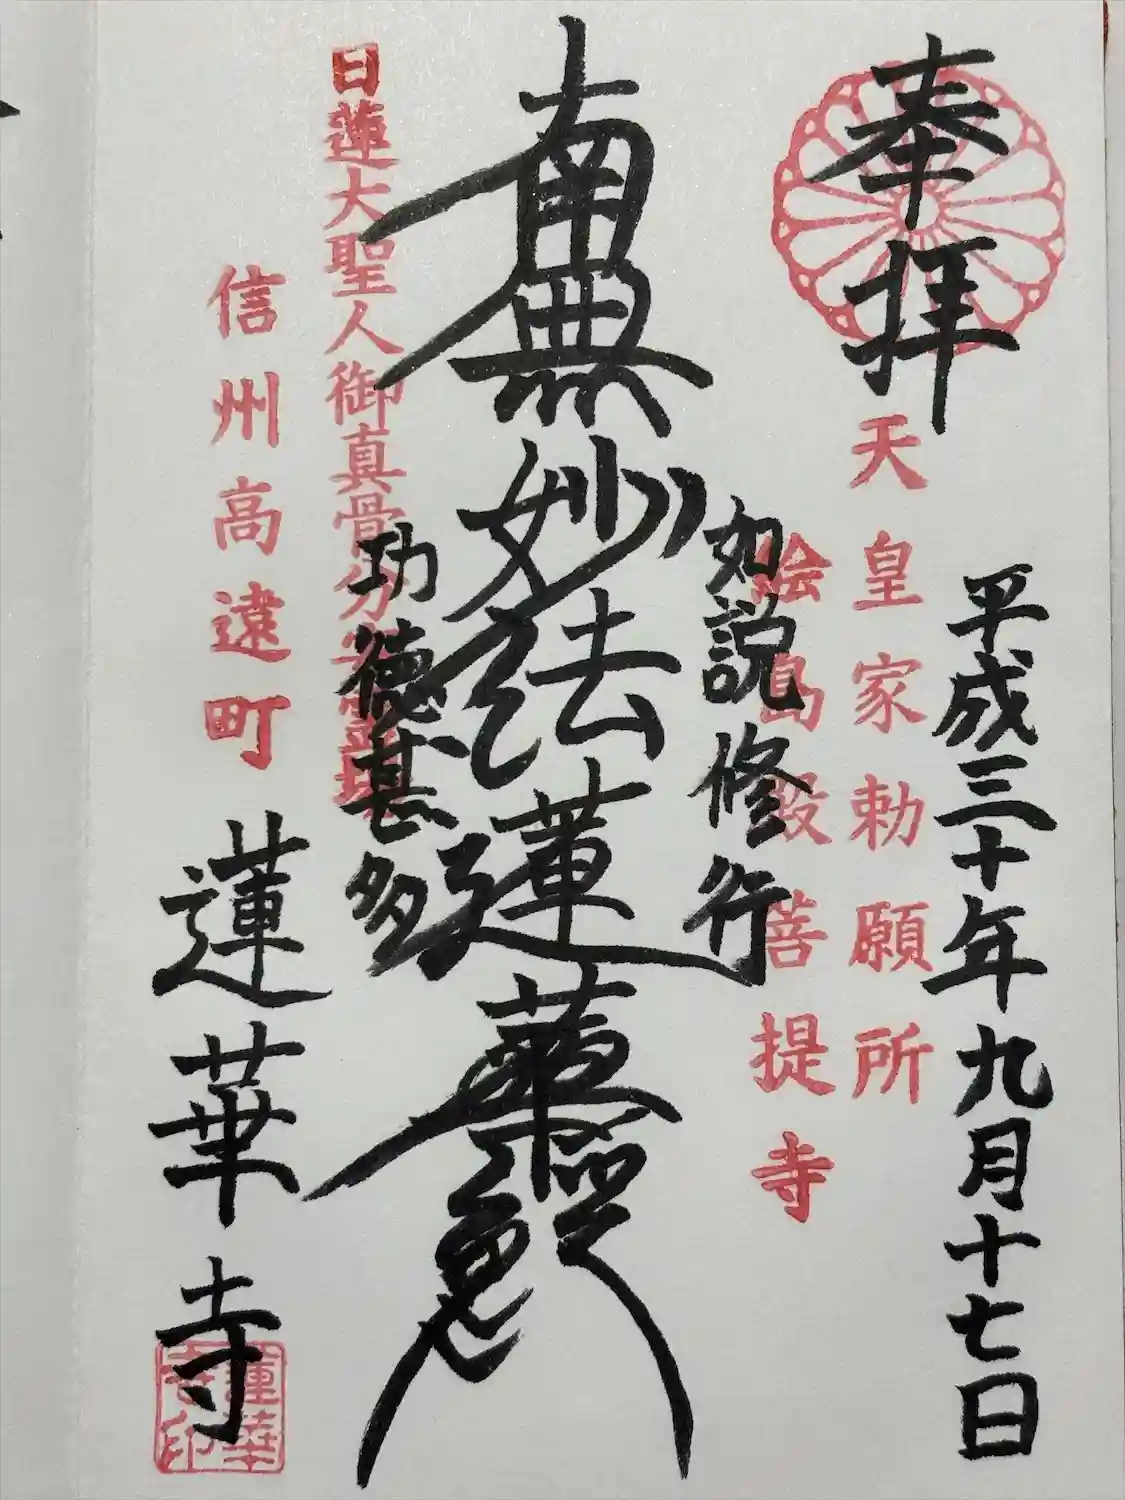 奉拝
平成三十年九月十七日
天皇家勅願所
絵島殿菩提寺
如説修行
南無妙法蓮華経
功徳甚多
日蓮大聖人御真骨分
信州高遠町
蓮華寺
蓮華寺印